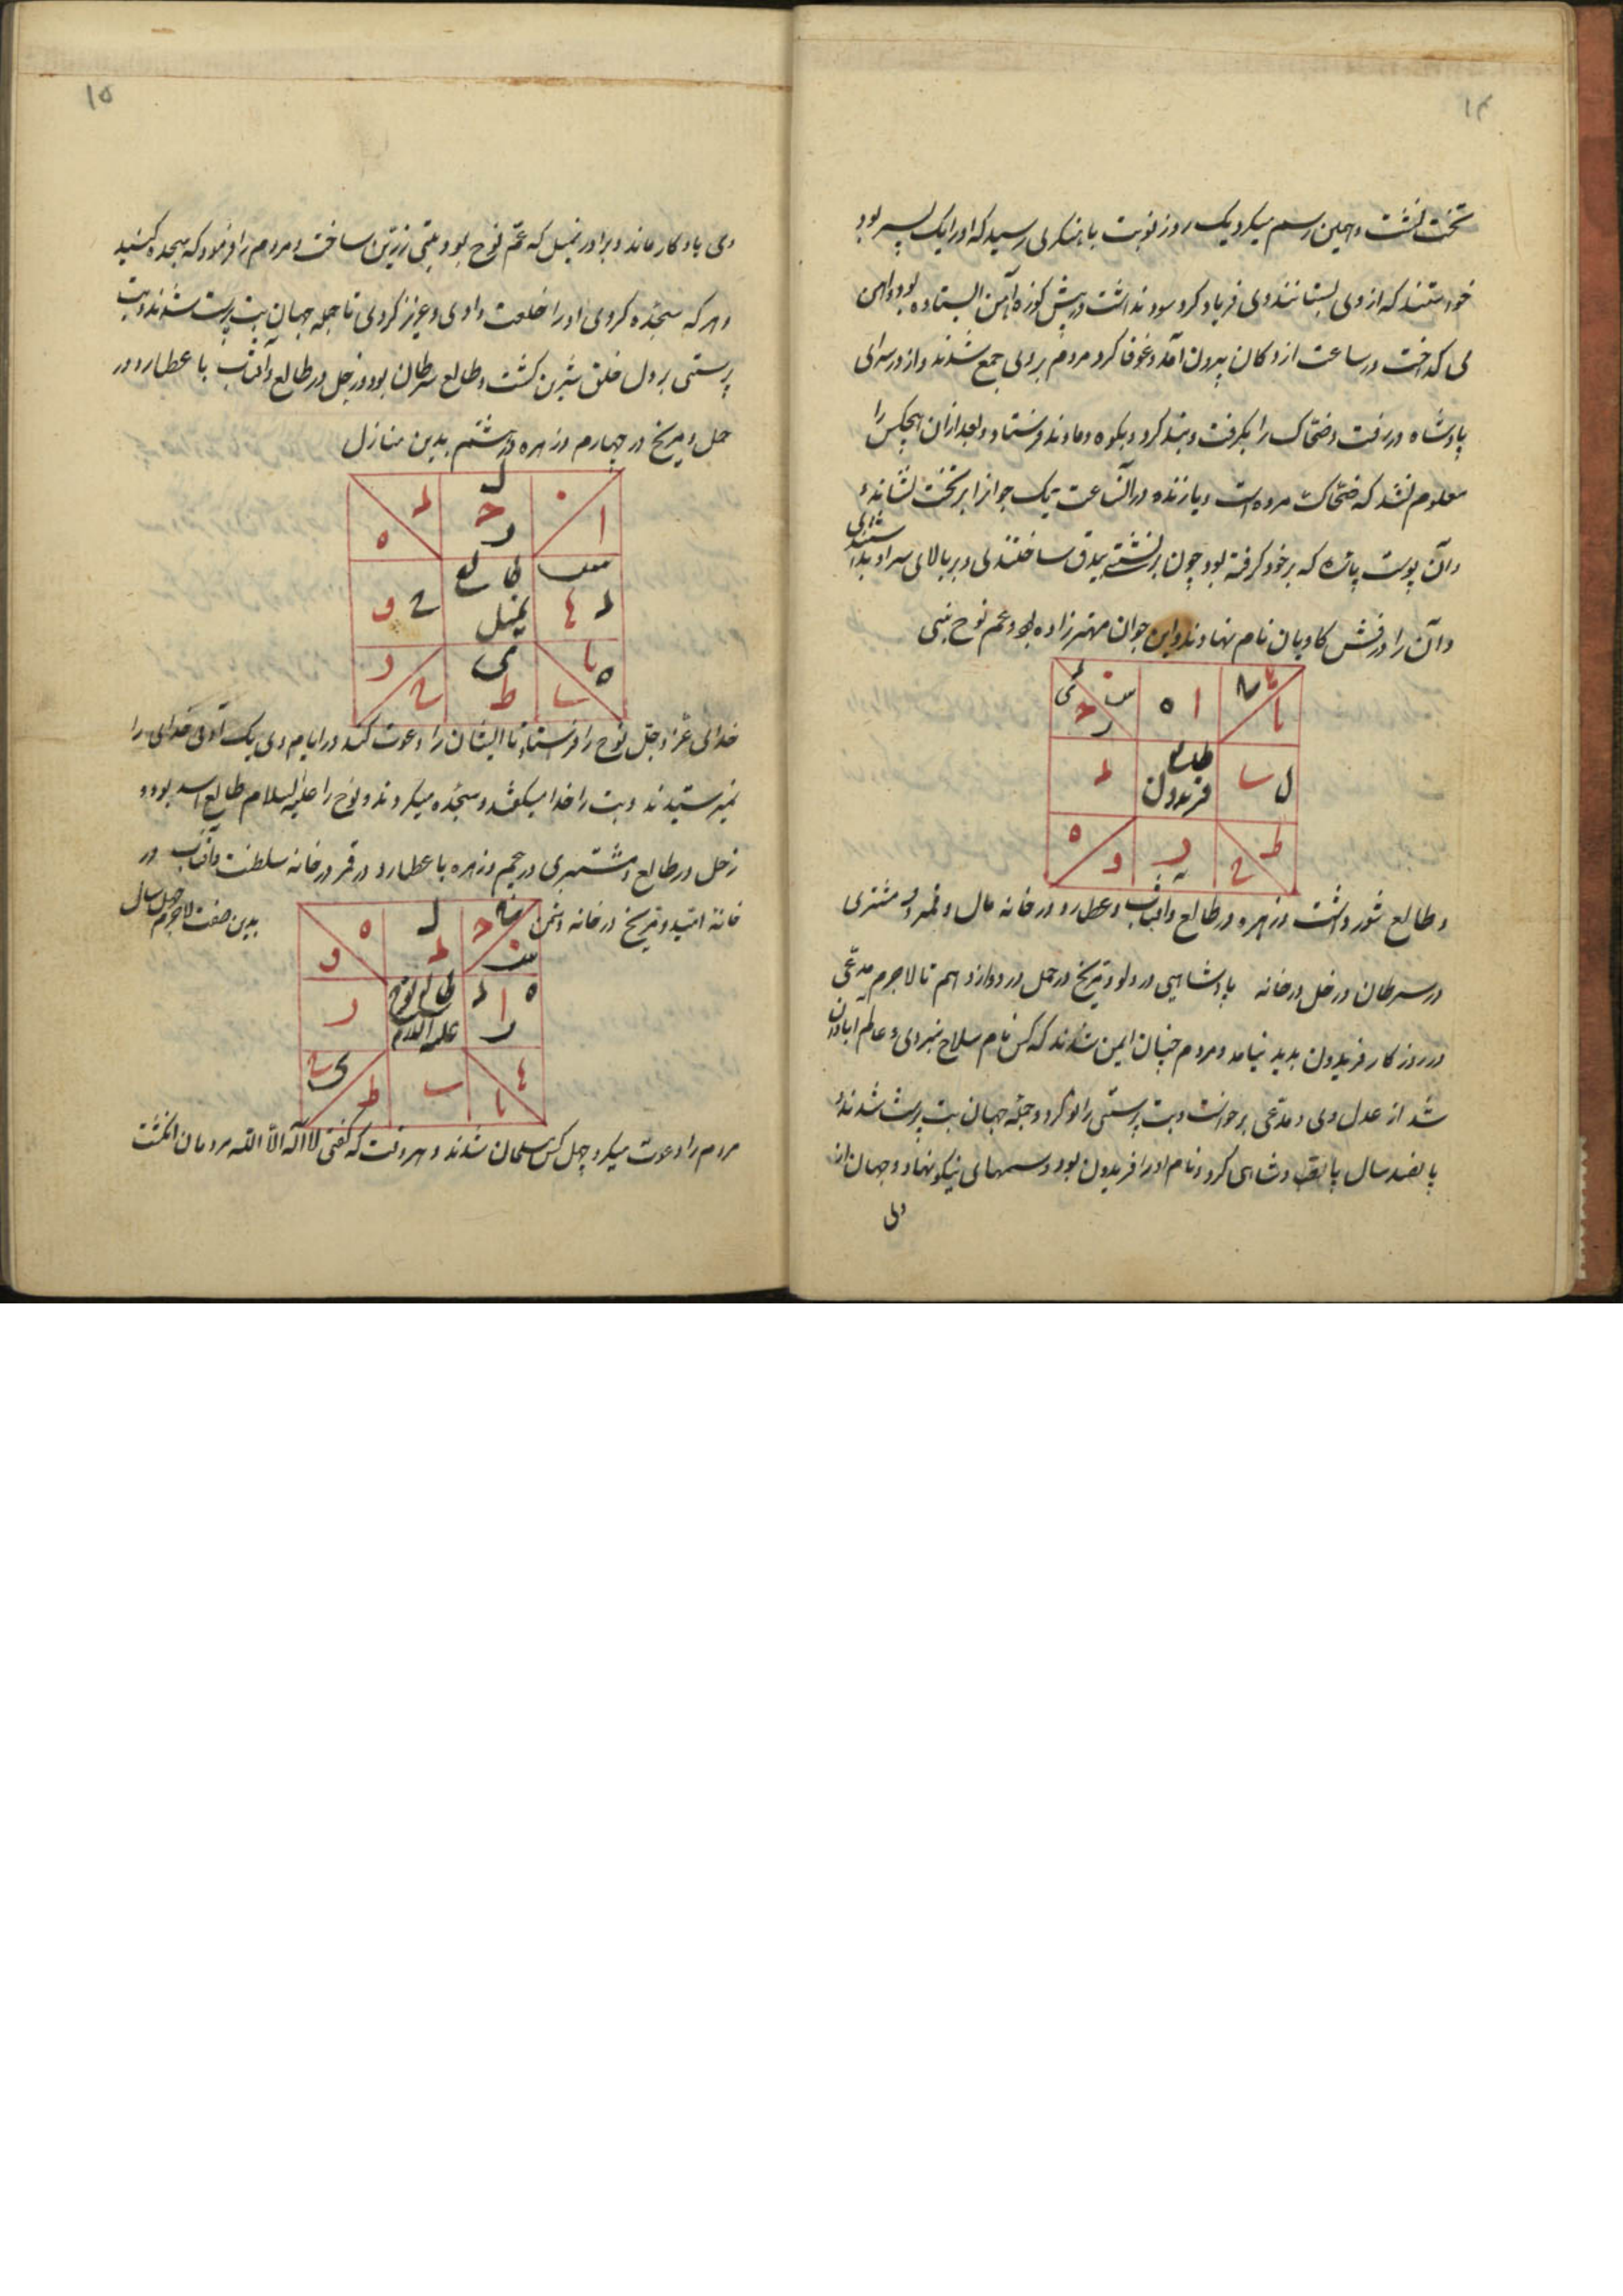 ۱۴
تخت نشست و همین رسم میکرد یک روز نوبت باهنکری رسید که او را یک پسر بود
خواستند که از وی بستانند وی فریاد کرد سود نداشت در پیش کوزه آهن ایستاده بود و آهن
می کداخت در ساعت از دکان بیرون آمد و غوغا کرد مردم بر وی جمع شدند و از در سرای
پادشاه در رفت و ضحاک را بکرفت و بند کرد و بکوه دماوند فرستاد و بعد از آن هیچکس را
معلوم نشد که ضحاک مرده است و یا زنده در آن ساعت یک جوانرا بر تخت نشاندند
و آن پوست پاره که بر خود کرفته بود چون برنشستی بیدق ساختندی و بر بالای سر او بداشتندی
و آن را درفش کاویان نام نهادند و این جوان مهتر زاده بود و عم نوح نبی
طالع
فریدون
و طالع ثور داشت و زهره در طالع و آفتاب و عطارد در خانه مال و قمر و مشتری
در سرطان و زحل در خانه پادشاهی در دلو و مریخ در حمل در دوازدهم تا لاجرم مدعی
در روزکار فریدون بدید نیامد و مردم چنان ایمن شدند که کس نام سلاح نبردی و عالم آبادان
شد از عدل وی و مدعی برخواست و بت پرستی را نو کرد و جمله جهان بت پرست شدند و
پانصد سال پادشاهی کرد و نام او را فریدون بود و رسمهای نیکو نهاد و جهان از
وی
۱۵
وی یادکار ماند و برادر نمیل که عم نوح بود بتی زرین ساخت و مردم را فرمود که سجده کنید
و هر که سجده کردی او را خلعت دادی و عزیز کردی تا جمله جهان بت پرست شدند و بت
پرستی بر دل خلق شیرین کشت و طالع سرطان بود و زحل در طالع و آفتاب با عطارد در
حمل و مریخ در چهارم و زهره در هشتم بدین منازل
طالع
نمیل
خدای عز و جل نوح را فرستاد تا ایشان را دعوت کند در ایام وی یک آدمی خدای را
نمیپرستیدند و بت را خدا میکفتند و سجده میکردند و نوح را علیه السلام طالع اسد بود و
زحل در طالع و مشتری در پنجم و زهره با عطارد و قمر در خانه سلطنت و آفتاب در
خانه امید و مریخ در خانه دشمن بدین صفت لاجرم چهل سال
طالع نوح
علیه السلام
مردم را دعوت میکرد چهل کس مسلمان شدند و هر وقت که کفتی لا اله الا الله مردمان انکشت